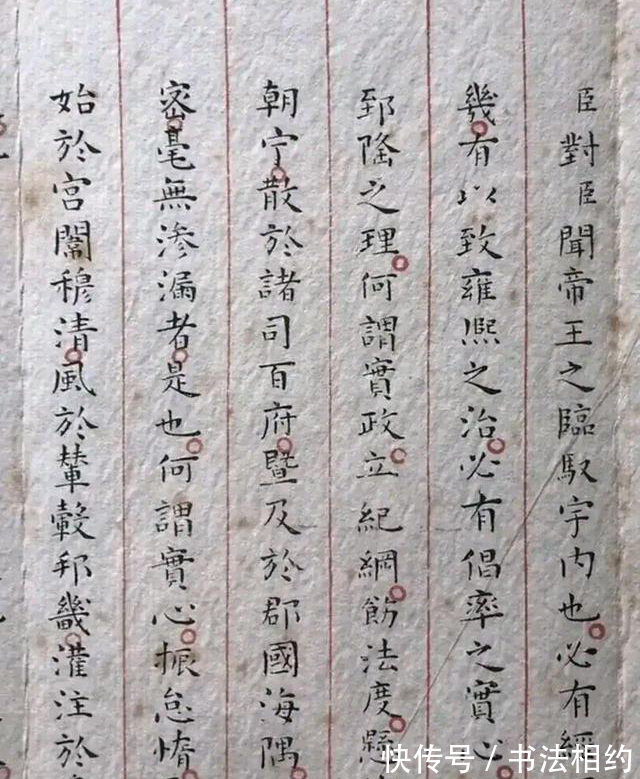 臣對臣聞帝王之臨馭宇內也必有經
幾有以致雍熙之治必有倡率之實心
郅隆之理何謂實政立紀綱飭法度懸
朝宁散於諸司百府暨及於郡國海隅
密毫無滲漏者是也何謂實心振怠惰
始於宮闈穆清風於輦轂邦畿灌注於
快传号/书法相约